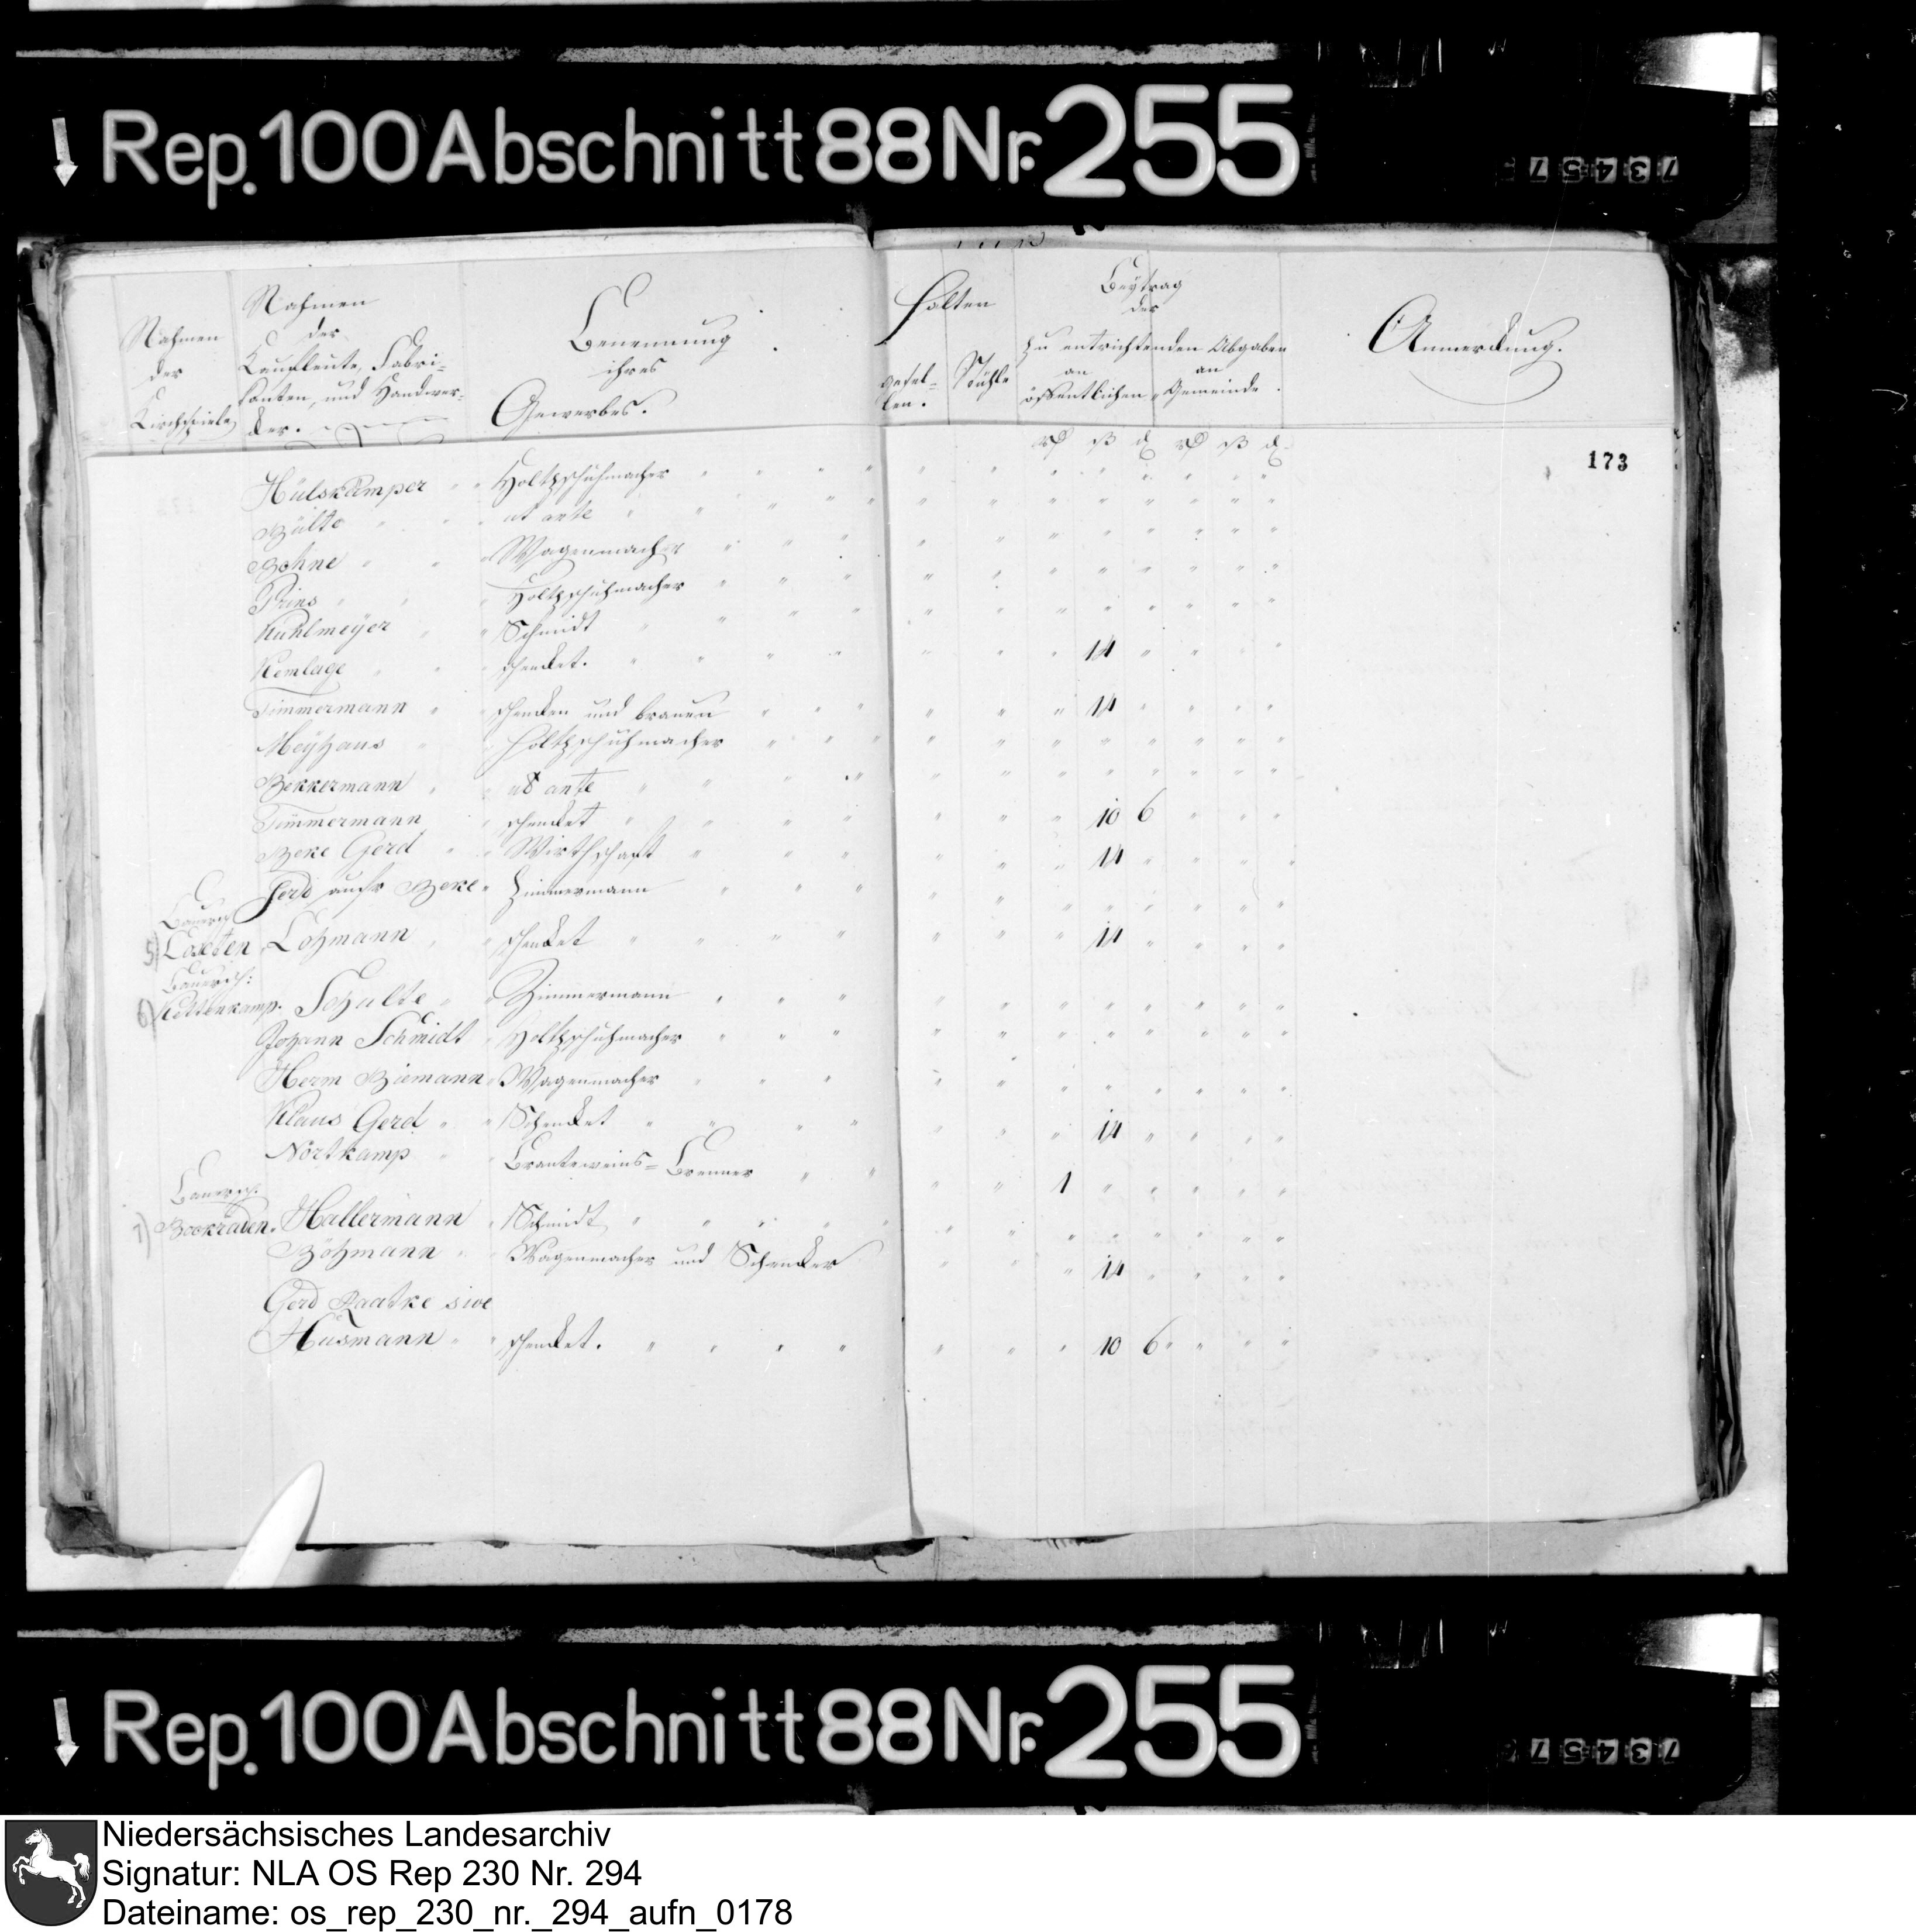 Rep. 100 Abschnitt 88 Nr. 255
73457
Nahmen
der
Kirchspiele
Nahmen
der
Kaufleute, Fabri-
kanten, und Handwer-
cker.
Benennung
ihres
Gewerbes.
Halten
Gesel-
len.
Stühle
Beytrag
der
zu entrichtenden Abgaben
an
öffentlichen
an
Gemeinde
Anmerckung.
173
Hülskämper Holtzschuhmacher
Bülte ut ante
Bohne Wagenmacher
Prins Holtzschuhmacher
Kuhlmeÿer Schmidt
Kemlage schencket. 14
Timmermann schencken und brauen 14
Meÿhaus Holtzschuhmacher
Bekkermann ut ante
Timmermann schencket 10 6
Beke Gerd Wirthschaft 14
Gerd aufr Beke Zimmermann
Bauersch
5) Loxten Lohmann schencket 14
Bauersch:
6) Kettenkamp. Schulte Zimmermann
Johann Schmidt Holtzschuhmacher
Herm Biemann Wagenmacher
Klaus Gerd Schencket 14
Nortkamp Branteweins-Brenner 1
Bauersch.
7) Bookraden. Hallermann Schmidt
Böhmann Wagenmacher und Schencker 14
Gerd Raatke sive
Husmann schencket. 10 6
Rep. 100 Abschnitt 88 Nr. 255
73457
Niedersächsisches Landesarchiv
Signatur: NLA OS Rep 230 Nr. 294
Dateiname: os_rep_230_nr._294_aufn_0178